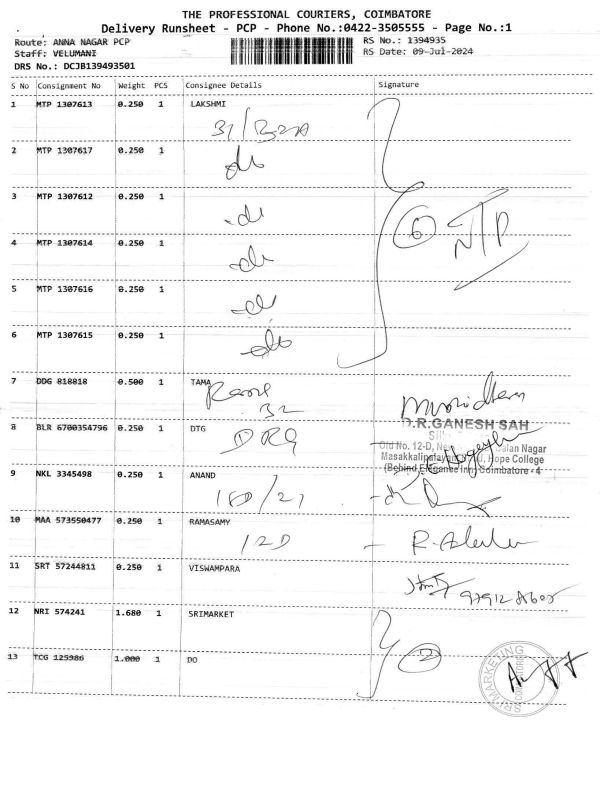 THE PROFESSIONAL COURIERS, COIMBATORE
Delivery Runsheet - PCP - Phone No.:0422-3505555 - Page No.:1
Route: ANNA NAGAR PCP RS No.: 1394935
Staff: VELUMANI RS Date: 09-Jul-2024
DRS No.: DCJB139493501
S No Consignment No Weight PCS Consignee Details Signature
1 MTP 1307613 0.250 1 LAKSHMI
2 MTP 1307617 0.250 1
do
3 MTP 1307612 0.250 1
do
6 NTP
4 MTP 1307614 0.250 1
do
5 MTP 1307616 0.250 1
do
6 MTP 1307615 0.250 1
do
7 DDG 818818 0.500 1 TAMA
32
8 BLR 6700354796 0.250 1 DTG
D.R.GANESH SAH
Old No. 12-D,
Hope College
(Behind Elegance Inn) Coimbatore - 4
9 NKL 3345498 0.250 1 ANAND
10 MAA 573550477 0.250 1 RAMASAMY
12D
11 SRT 57244811 0.250 1 VISWAMPARA
12 NRI 574241 1.680 1 SRIMARKET
2
13 TCG 125986 1.000 1 DO
SRI MARKETING
COIMBATORE